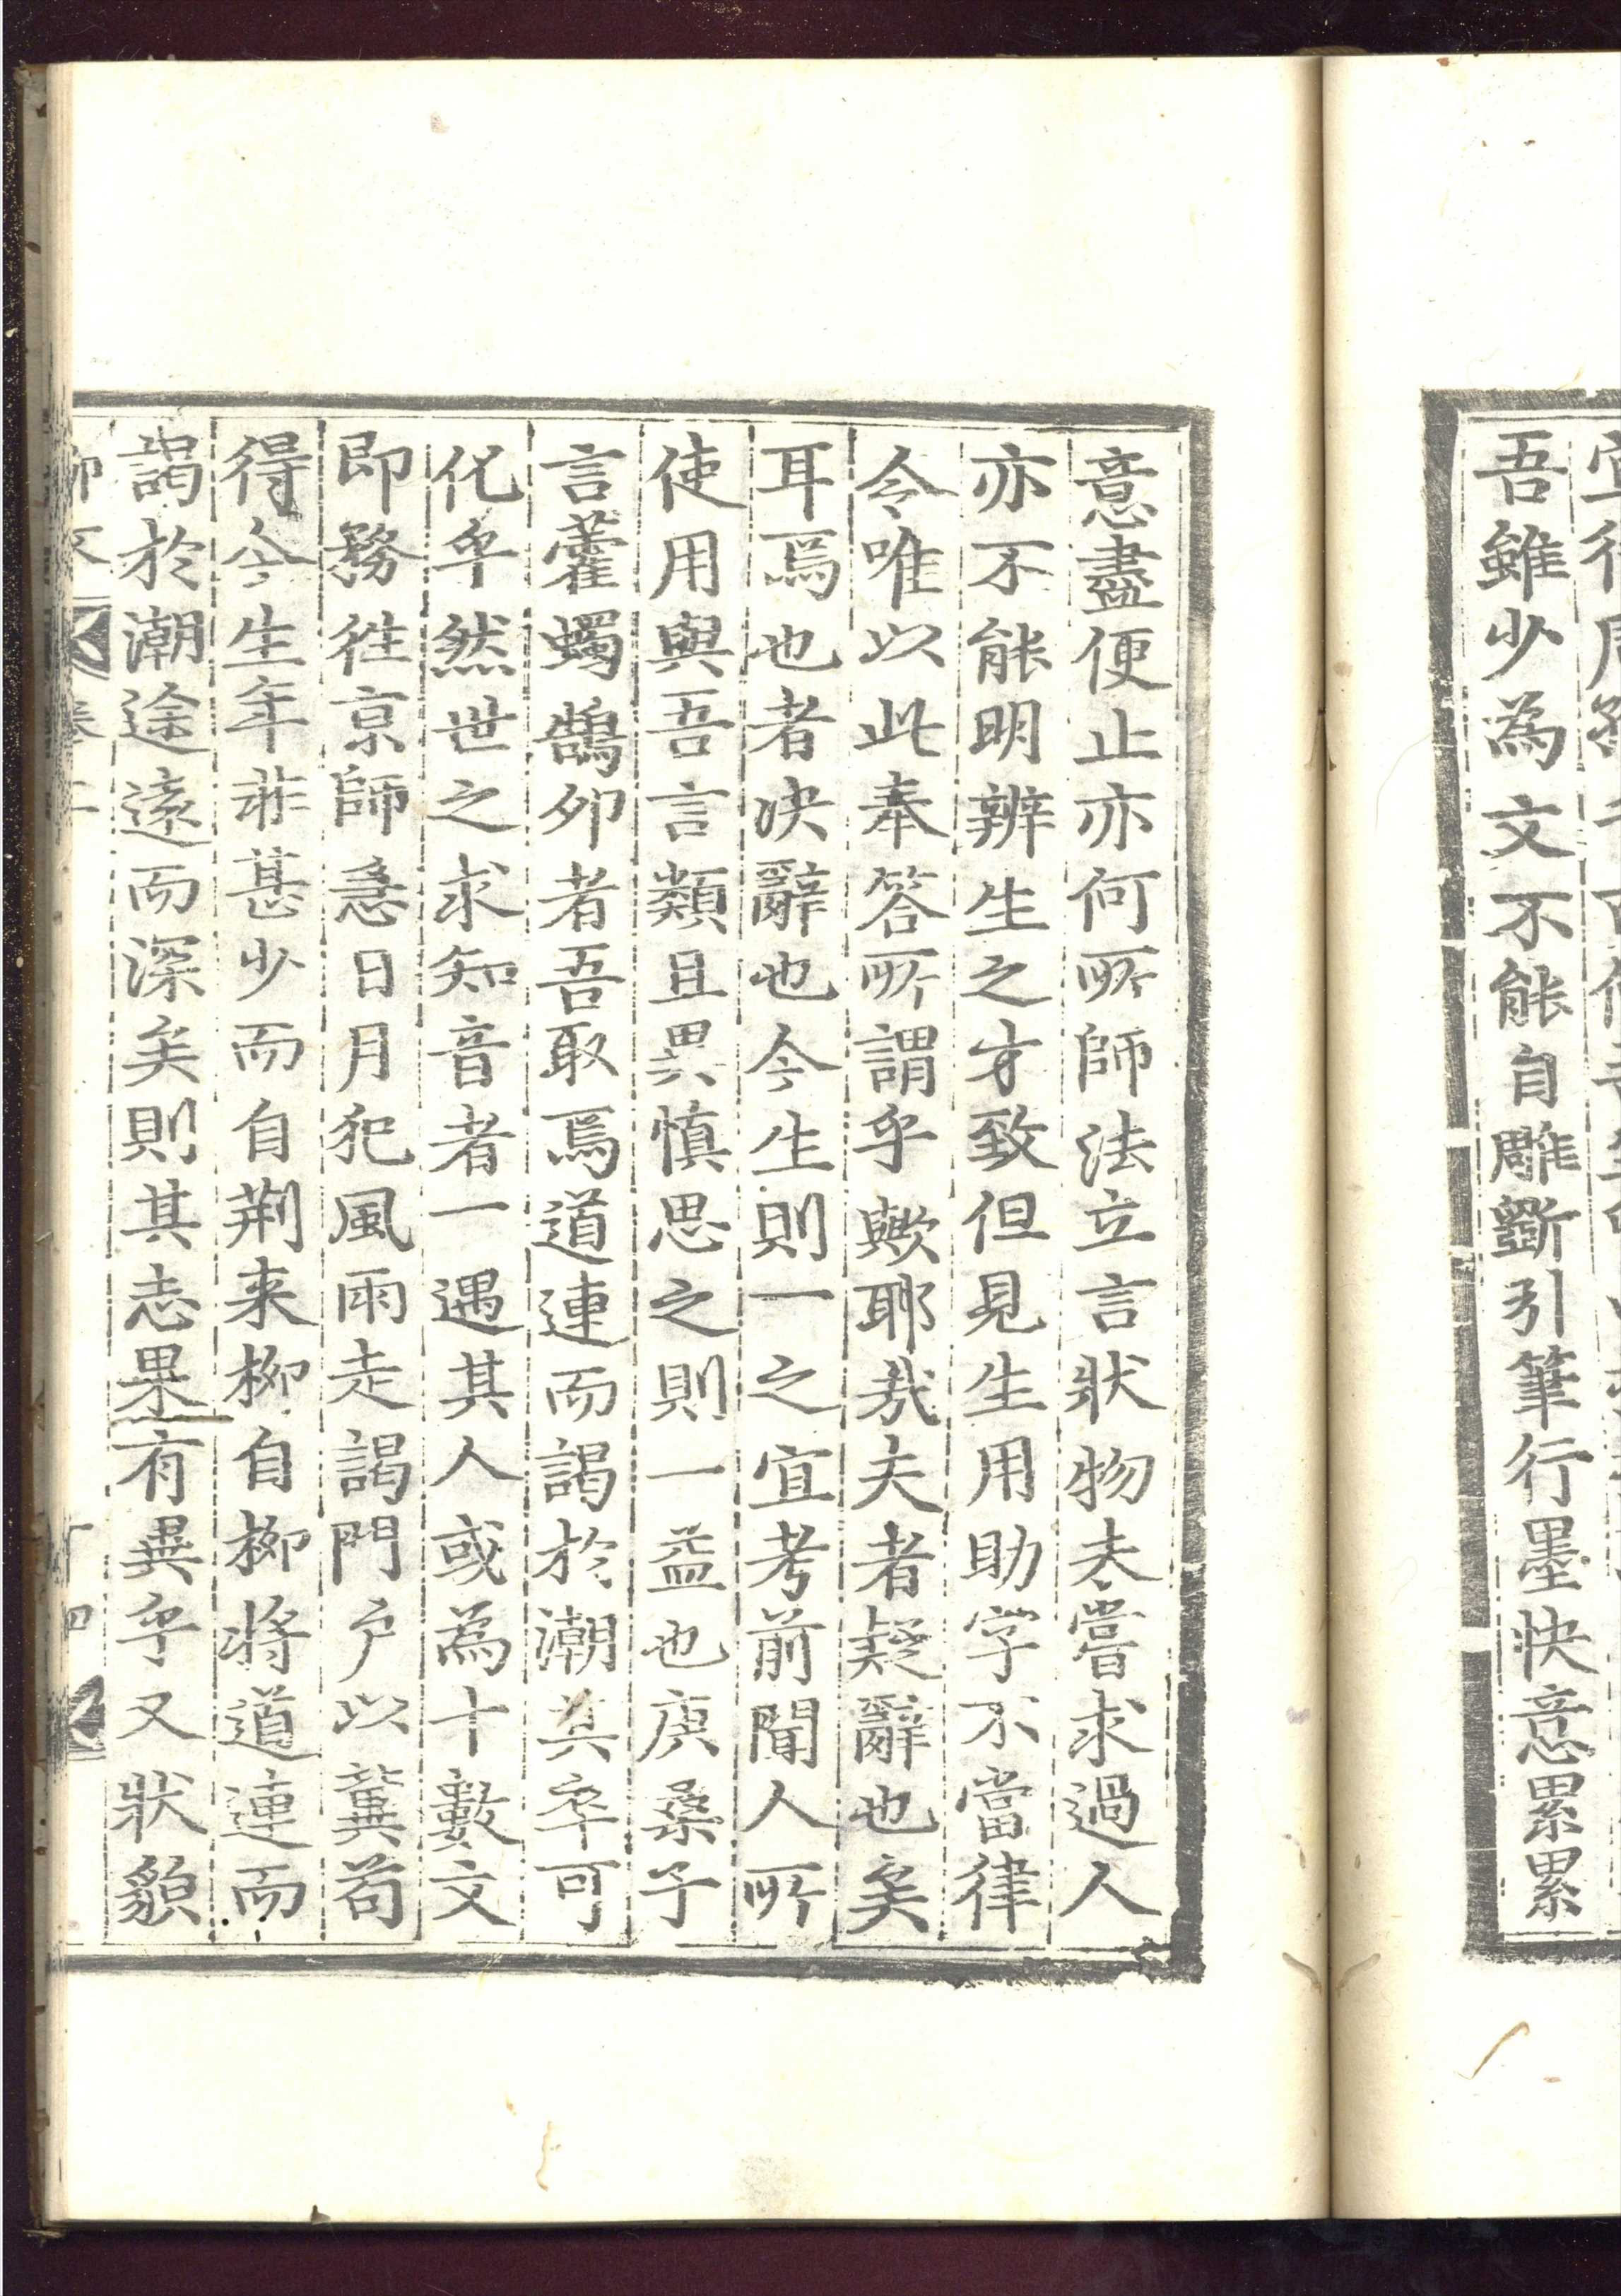 吾雖少為文不能自雕斵引筆行墨快意累累
意盡便止亦何所師法立言狀物未嘗求過人
亦不能明辨生之才致但見生用助字不當律
令唯以此奉答所謂乎歟耶哉夫者疑辭也矣
耳焉也者決辭也今生則一之宜考前聞人所
使用與吾言類且異慎思之則一益也庚桑子
言藿蠋鵠卵者吾取焉道連而謁於潮其卒可
化乎然世之求知音者一遇其人或為十數文
即務徃京師急日月犯風雨走謁門户以冀苟
得今生年非甚少而自荆来柳自柳將道連而
謁於潮途遠而深矣則其志果有異乎又狀貌